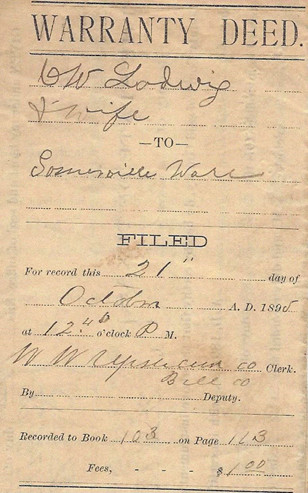 WARRANTY DEED.
D W Lodwig
& Wife
—TO—
Somerville Ware
FILED
For record this 21" day of
October A. D. 1895
at 12 40 o'clock P M.
W W Upshaw co Clerk.
Bell co
By Deputy.
Recorded to Book 103 on Page 113
Fees, - - - $1.00